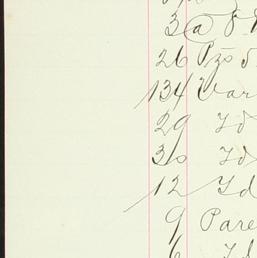 3 @
26 Pzs
134 Var
29 Id
30 Id
12 Id
9 Pare
6 Id